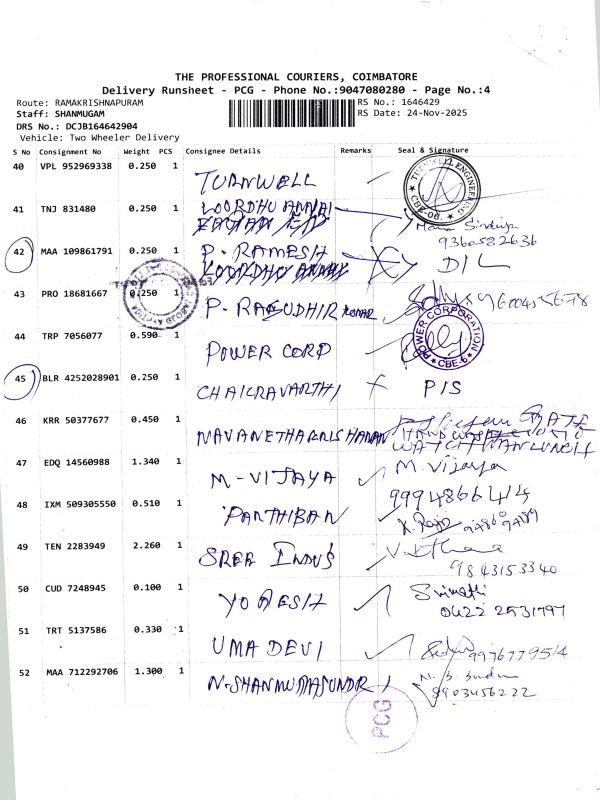 THE PROFESSIONAL COURIERS, COIMBATORE
Delivery Runsheet - PCG - Phone No.:9047080280 - Page No.:4
Route: RAMAKRISHNAPURAM
Staff: SHANMUGAM
DRS No.: DCJB164642904
Vehicle: Two Wheeler Delivery
RS No.: 1646429
RS Date: 24-Nov-2025
S No Consignment No Weight PCS Consignee Details Remarks Seal & Signature
40 VPL 952969338 0.250 1 TURNWELL
TURNWELL ENGINEERING CBE-06.
41 TNJ 831480 0.250 1 LOORDHU
9360582636
42 MAA 109861791 0.250 1 P. RAMESH DIL
43 PRO 18681667 0.250 1 P. RAGUDHIR KUMAR
44 TRP 7056077 0.590 1 POWER CORP
POWER CORPORATION CBE-6
45 BLR 4252028901 0.250 1 CHAKRAVARTHI PIS
46 KRR 50377677 0.450 1 NAVANETHAKRISHANAN
47 EDQ 14560988 1.340 1 M-VIJAYA M. Vijaya
9994866414
48 IXM 509305550 0.510 1 PARTHIBAN
49 TEN 2283949 2.260 1 SREE INDUS
9843153340
50 CUD 7248945 0.100 1 YOGESH
0422 2531797
51 TRT 5137586 0.330 1 UMA DEVI 9976779514
52 MAA 712292706 1.300 1
8903456222
PCG